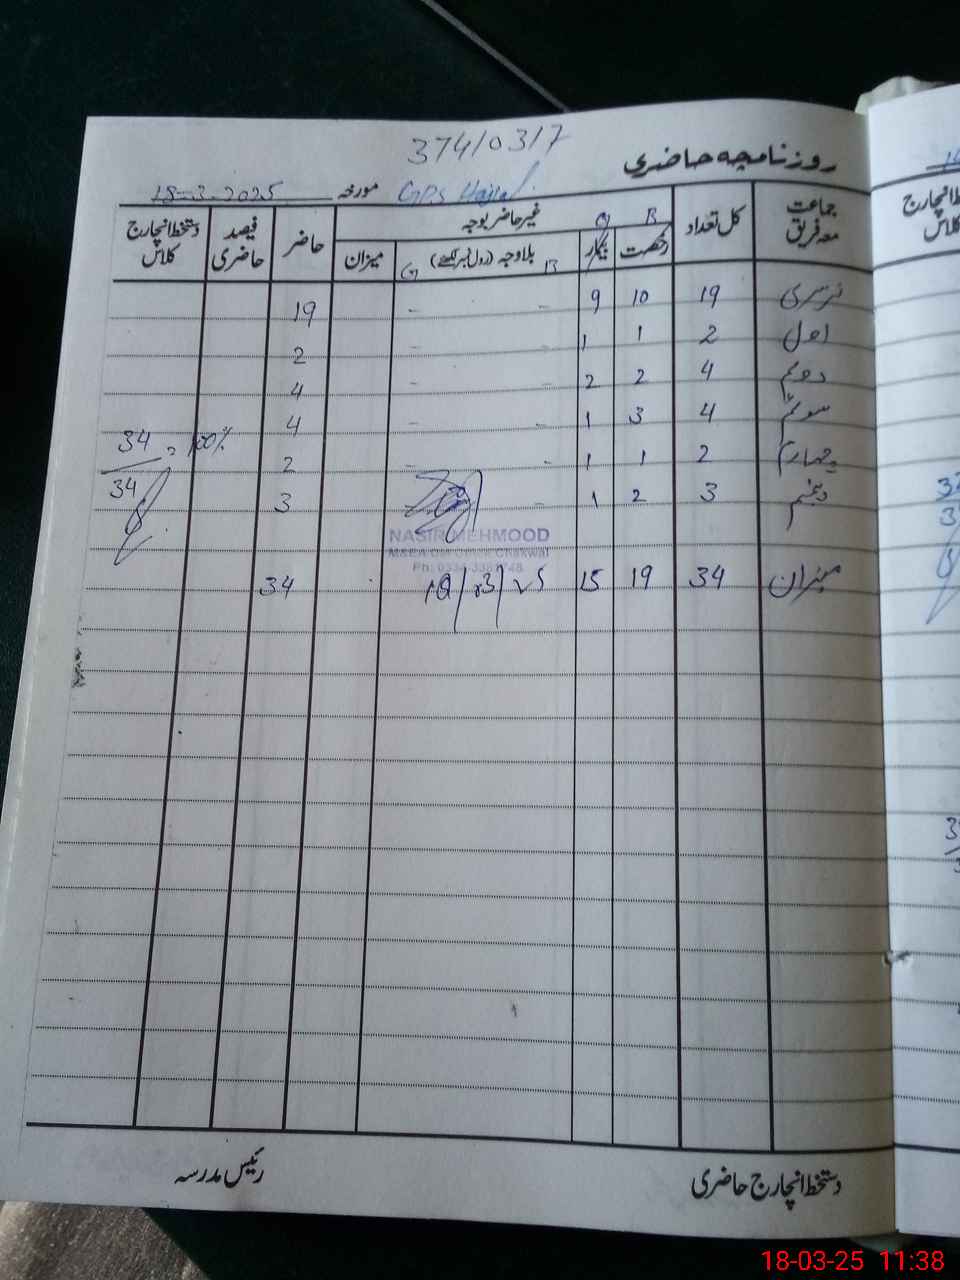 37410317
روزنامچہ حاضری
GPS مورخہ 18-3-2025
جماعت معہ فریق کل تعداد غیر حاضر بوجہ حاضر فیصد حاضری دستخط انچارج کلاس
B G
رخصت بیمار بلاوجہ (رول نمبر لکھیے) میزان
B G
نرسری 19 10 9 - - 19
اول 2 1 1 - - 2
دوئم 4 2 2 - - 4
سوئم 4 3 1 - - 4
چہارم 2 1 1 - - 2
34/34 = 100%
پنجم 3 2 1 - 3
NASIR MEHMOOD
M&EA Chakwal
Ph:
میزان 34 19 15 34
دستخط انچارج حاضری رئیس مدرسہ
18-03-25 11:38